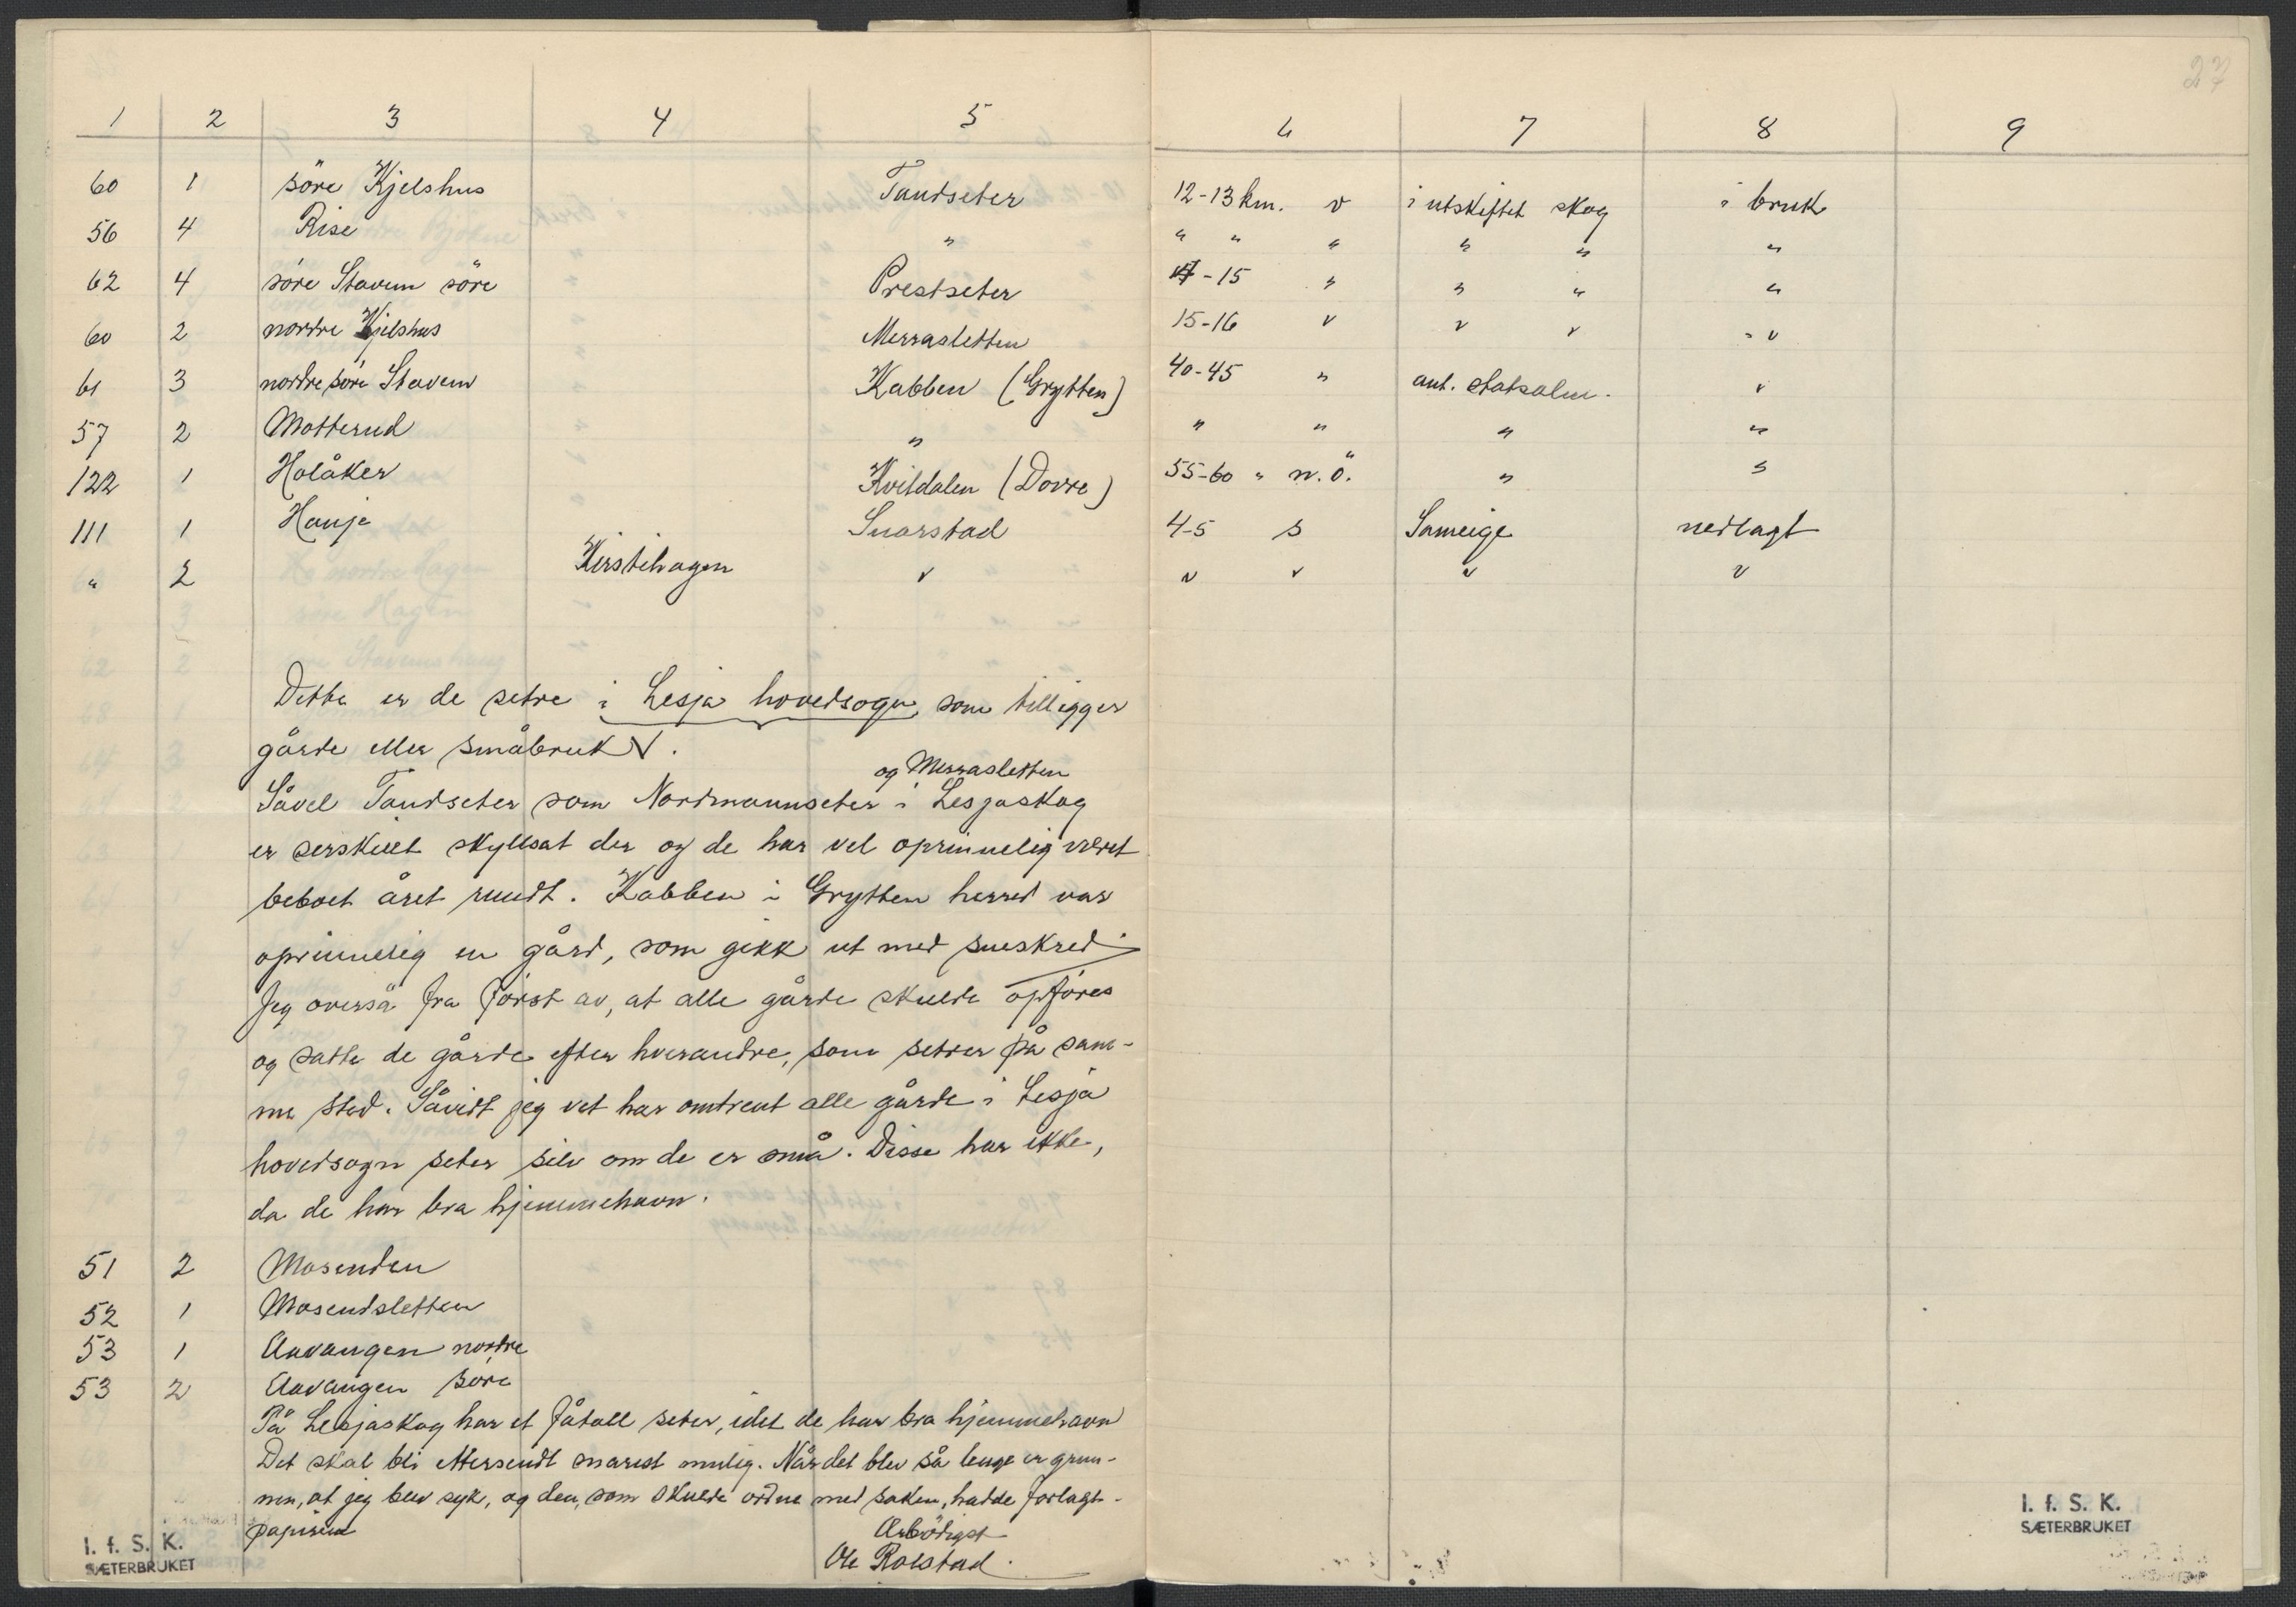 27
1 2 3 4 5 6 7 8 9
60 1 söre Kjelshus Tandseter 12-13 km. v i utskiftet skog i bruk
56 4 Rise " " " " " " "
62 4 söre Stavem söre Prestseter 14-15 " " " "
60 2 nordre Kjelshus Merrasletten 15-16 v v v " v
61 3 nordre söre Stavem Kabben (Grytten) 40-45 " ant. statsalm. v
57 2 Motterud " " " " "
122 1 Holåker Kvitdalen (Dovre) 55-60 " n.ö. " "
111 1 Hanje Snarstad 4-5 s Sameige nedlagt
" 2 Kirstihagen v v v v v
Dette er de setre i Lesja hovedsogn, som tilligger
gårde eller småbruk.
og Merrasletten
Såvel Tandseter som Nordmannseter i Lesjaskog
er serskilt skyldsat der og de har vel oprinnelig været
beboet året rundt. Kabben i Grytten herred var
oprinnelig en gård, som gikk ut med sneskred.
Jeg overså fra først av, at alle gårde skulde opføres
og satte de gårde efter hverandre, som setrer på sam-
me sted. Såvidt jeg vet har omtrent alle gårde i Lesja
hovedsogn seter selv om de er små. Disse har ikke,
da de har bra hjemmehavn.
51 2 Mosenden
52 1 Mosendsletten
53 1 Aavangen nordre
53 2 Aavangen söre
På Lesjaskog har et fåtall seter, idet de har bra hjemmehavn
Det skal bli ettersendt snarest mulig. Når det blev så lenge er grun-
nen, at jeg blev syk, og den, som skulde ordne med saken, hadde forlagt
papirene
Ærbödigst
Ole Rolstad.
I. f. S. K.
SÆTERBRUKET
I. f. S. K.
SÆTERBRUKET